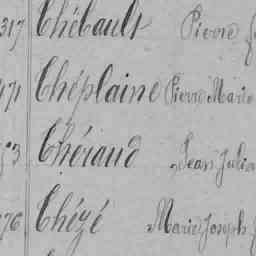 317 Thébault Pierre
471 Théplaine Pierre Marie
53 Théraud Jean Julia
76 Thézé Marie Joseph